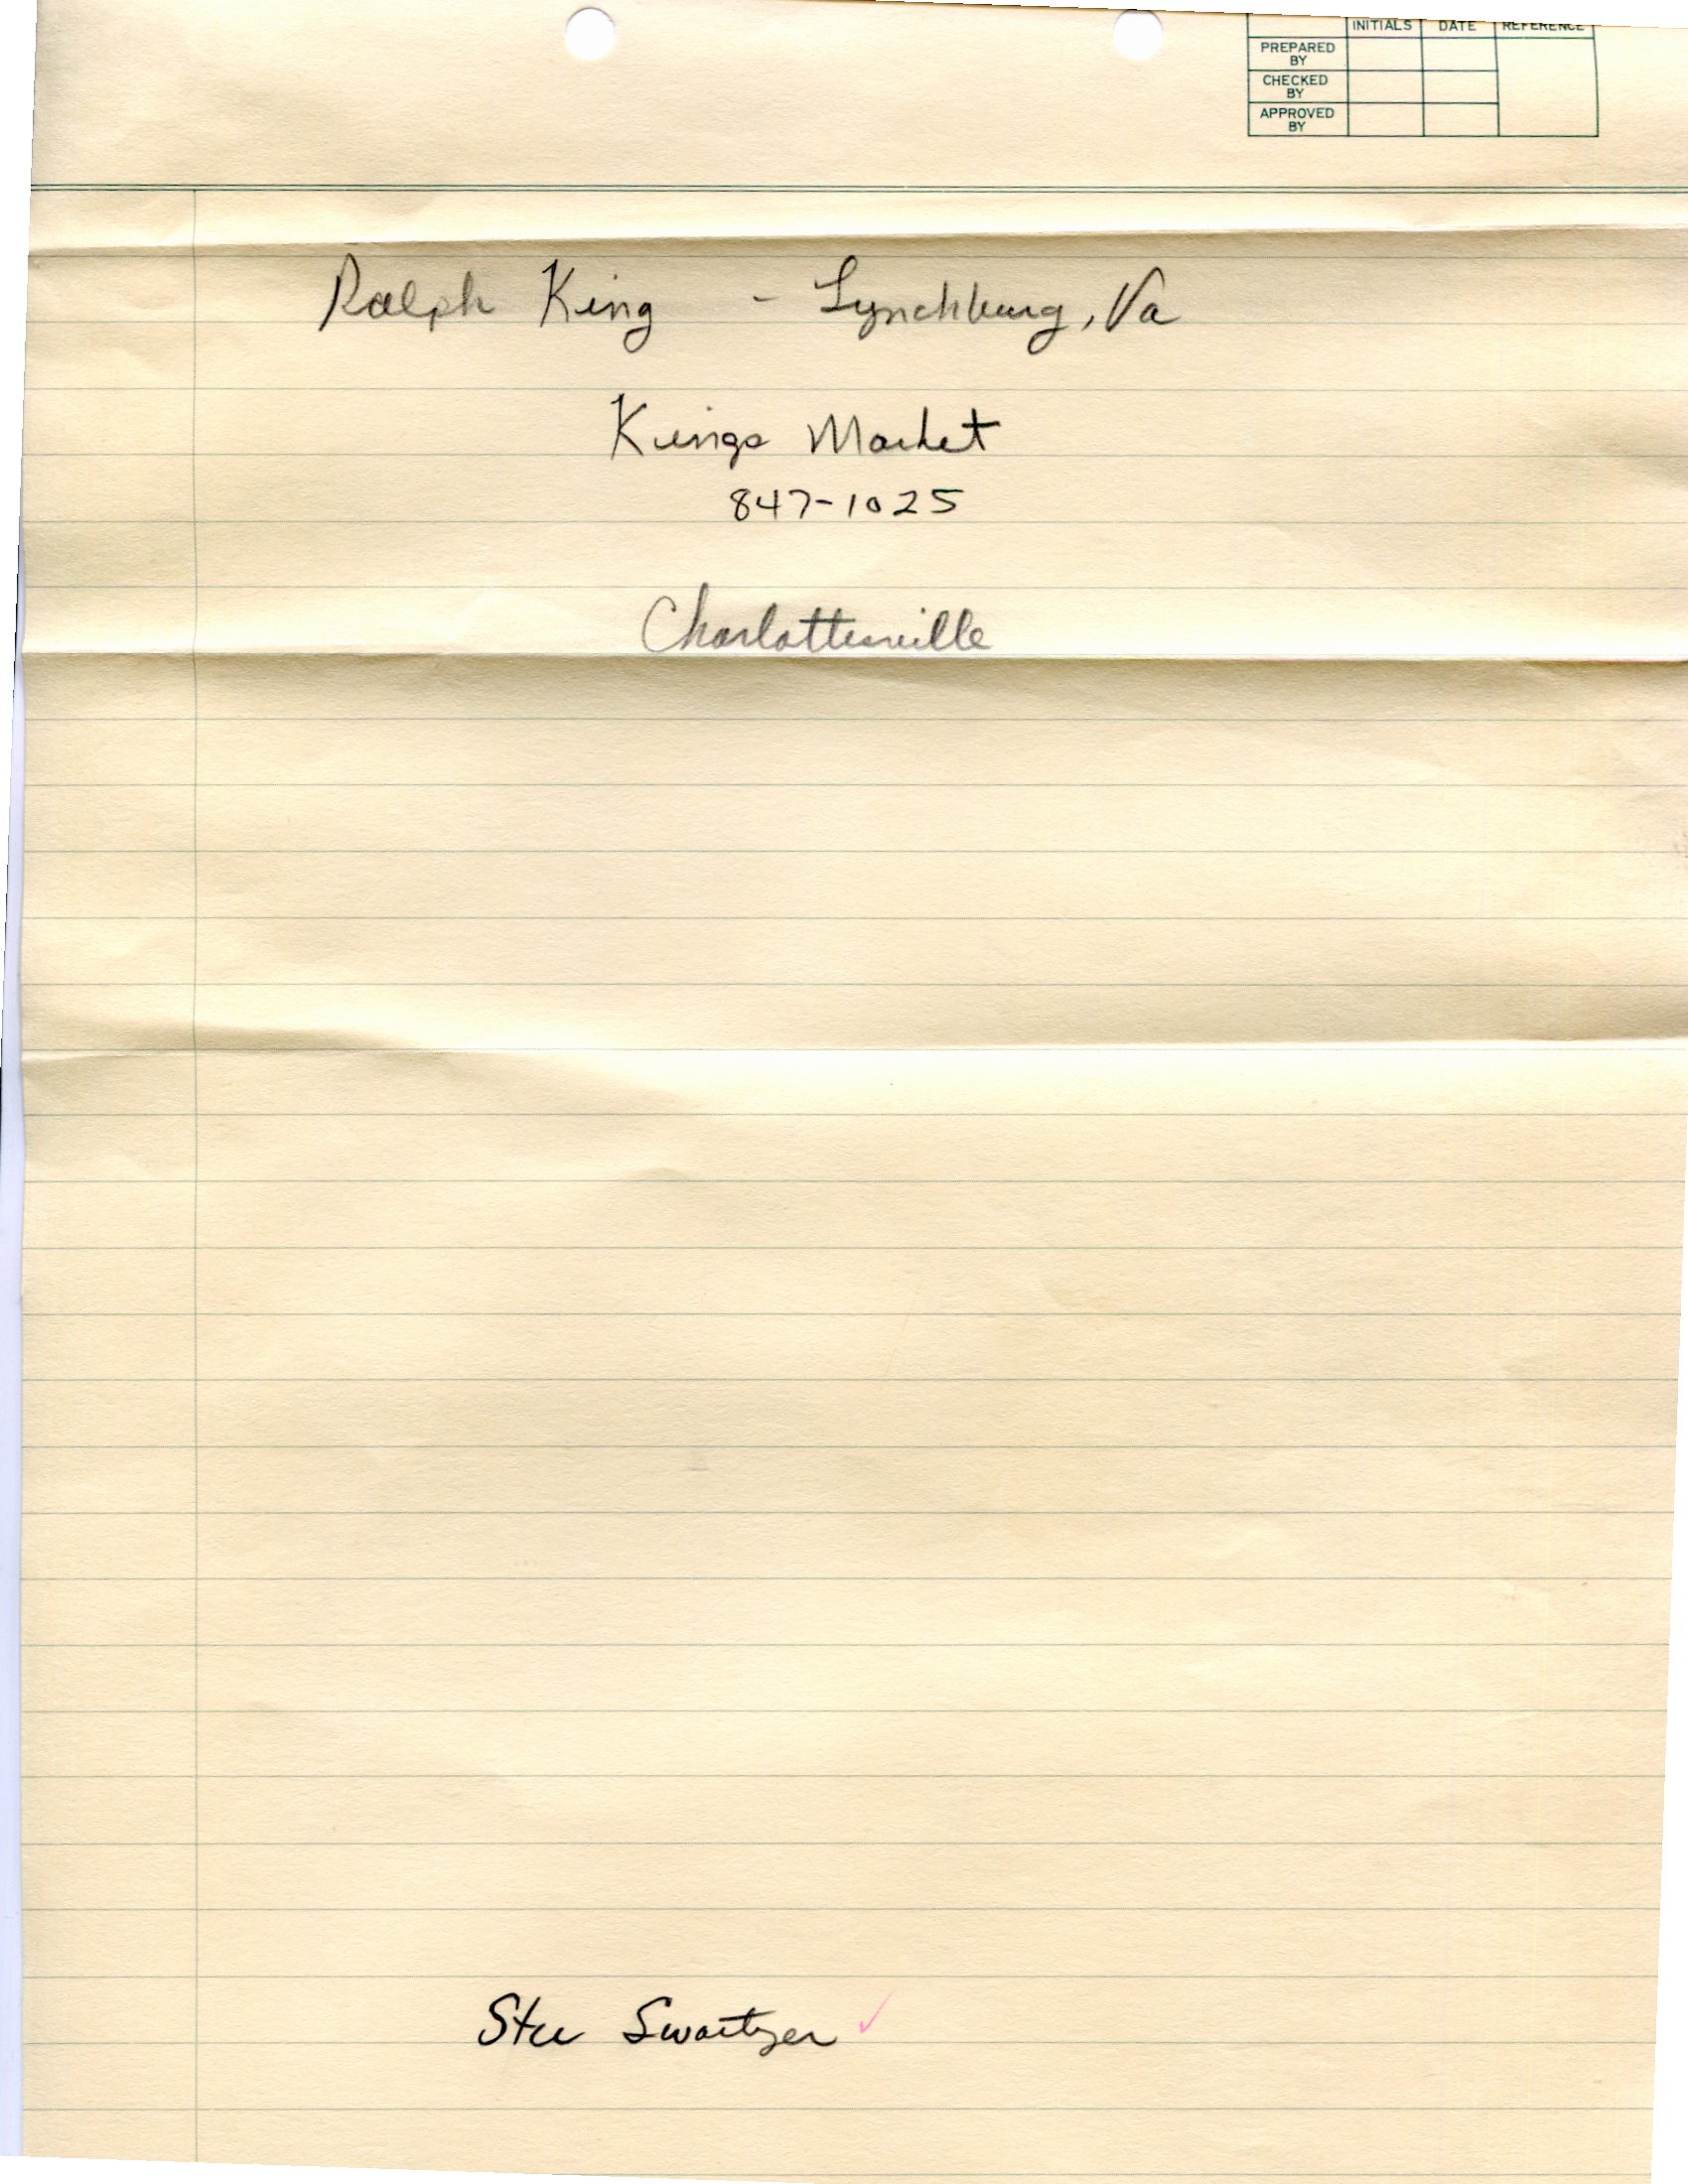 INITIALS DATE REFERENCE
PREPARED BY
CHECKED BY
APPROVED BY
Ralph King - Lynchburg, Va
Kings Market
847-1025
Charlottesville
Stu Swartzer